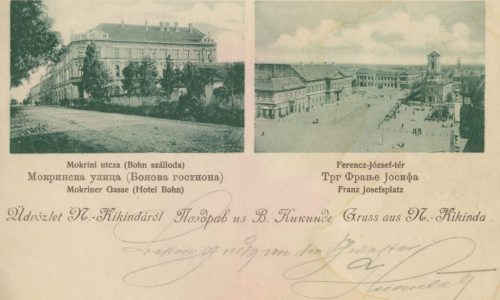 Mokrini utcza (Bohn szálloda)
Мокринска улица (Бонова гостиона)
Mokriner Gasse (Hotel Bohn)
Ferencz-József-tér
Трг Фрање Јосифа
Franz Josefsplatz
Üdvözlet N.-Kikindáról Поздрав из В. Кикинде Gruss aus N.-Kikinda